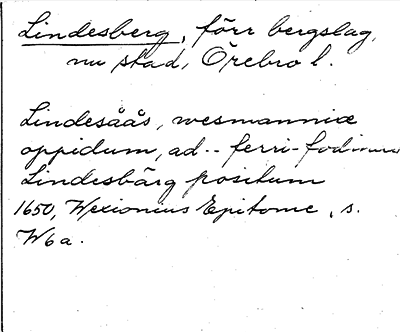 Lindesberg, förr bergslag,
nu stad, Örebro l.
Lindesåås, wesmanniæ
oppidum, ad -- ferri-fodinam
Lindesbärg positum
1650, Wexionius Epitome, s.
W6a.